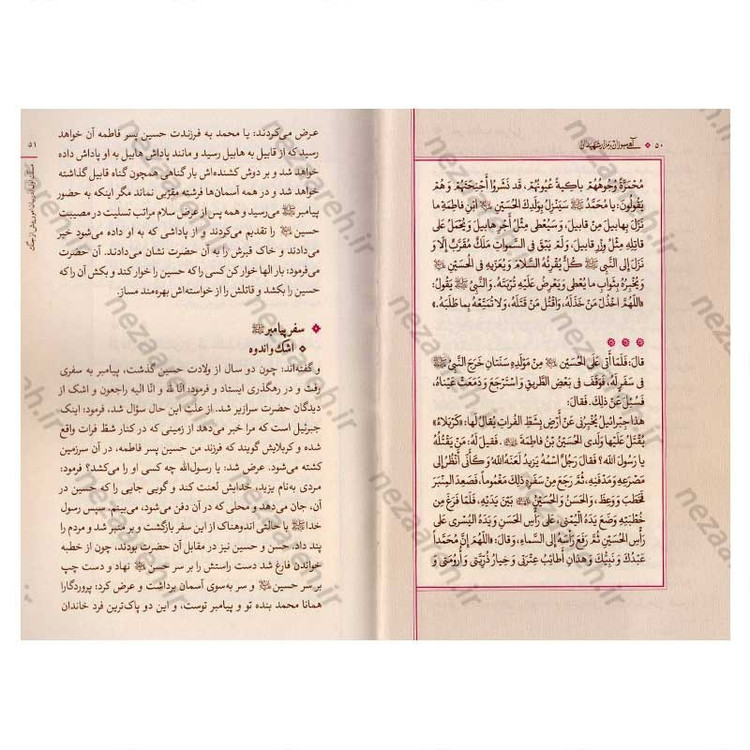 ۵۰ آهی سوزان بر مزار شهیدان
مُحْمَرَّةً وُجُوهُهُمْ باكِيةً عُيُونُهُمْ، قَد نَشَرُوا أَجْنِحَتَهُمْ وَ هُمْ
يَقُولُونَ: يا مُحَمَّدُ ﷺ سَيَنْزِلُ بِوَلَدِكَ الْحُسَيْنِ ابْنِ فاطِمَةَ ما
نَزَلَ بِهابِيلَ مِنْ قابِيلَ، وَ سَيُعْطى مِثْلُ أَجْرِ هابِيلَ وَ يُحْمَلُ عَلى
قاتِلِهِ مِثْلُ وِزْرِ قابِيلَ، وَ لَمْ يَبْقَ فِي السَّمواتِ مَلَكٌ مُقَرَّبٌ إِلّا وَ
نَزَلَ إِلَى النَّبِيِّ ﷺ كُلٌّ يُقْرِئُهُ السَّلامَ وَ يُعَزِّيهِ فِي الْحُسَيْنِ
وَ يُخْبِرُهُ بِثَوابِ ما يُعْطى وَ يَعْرِضُ عَلَيْهِ تُرْبَتَهُ. وَ النَّبِيُّ ﷺ يَقُولُ:
«اللّهُمَّ اخْذُلْ مَنْ خَذَلَهُ، وَ اقْتُلْ مَنْ قَتَلَهُ، وَ لا تُمَتِّعْهُ بِما طَلَبَهُ.»
قالَ: فَلَمّا أَتى عَلَى الْحُسَيْنِ مِنْ مَوْلِدِهِ سَنَتانِ خَرَجَ النَّبِيُّ ﷺ
فِي سَفَرٍ لَهُ، فَوَقَفَ فِي بَعْضِ الطَّرِيقِ وَ اسْتَرْجَعَ وَ دَمَعَتْ عَيْناهُ،
فَسُئِلَ عَنْ ذلِكَ. فَقالَ:
هذا جِبْرائِيلُ يُخْبِرُنِي عَنْ أَرْضٍ بِشَطِّ الْفُراتِ يُقالُ لَها: «كَرْبَلاءُ»
يُقْتَلُ عَلَيْها وَلَدِي الْحُسَيْنُ بْنُ فاطِمَةَ. فَقِيلَ لَهُ: مَنْ يَقْتُلُهُ
يا رَسُولَ اللهِ؟ فَقالَ رَجُلٌ اسْمُهُ يَزِيدُ لَعَنَهُ اللهُ وَ كَأَنِّي أَنْظُرُ إِلى
مَصْرَعِهِ وَ مَدْفَنِهِ. ثُمَّ رَجَعَ مِنْ سَفَرِهِ ذلِكَ مَغْمُوماً، فَصَعِدَ الْمِنْبَرَ
فَخَطَبَ وَ وَعَظَ، وَ الْحَسَنُ وَ الْحُسَيْنُ بَيْنَ يَدَيْهِ، فَلَمّا فَرَغَ مِنْ
خُطْبَتِهِ وَضَعَ يَدَهُ الْيُمْنى، عَلى رَأْسِ الْحَسَنِ وَ يَدَهُ الْيُسْرى عَلى
رَأْسِ الْحُسَيْنِ ثُمَّ رَفَعَ رَأْسَهُ إِلَى السَّماءِ، وَ قالَ: «اللّهُمَّ إِنَّ مُحَمَّداً
عَبْدُكَ وَ نَبِيُّكَ وَ هذانِ أَطائِبُ عِتْرَتِي وَ خِيارُ ذُرِّيَّتِي وَ أُرُومَتِي وَ
۵۱
عرض می‌کردند: یا محمد به فرزندت حسین پسر فاطمه آن خواهد
رسید که از قابیل به هابیل رسید و مانند پاداش هابیل به او پاداش داده
خواهد شد و بر دوش کشنده‌اش بار گناهی همچون گناه قابیل گذاشته
خواهد شد و در همه آسمان‌ها فرشته مقرّبی نماند مگر اینکه به حضور
پیامبر ﷺ می‌رسید و همه پس از عرض سلام مراتب تسلیت در مصیبت
حسین را تقدیم می‌کردند و از پاداشی که به او داده می‌شود خبر
می‌دادند و خاک قبرش را به آن حضرت نشان می‌دادند. آن حضرت
می‌فرمود: بار الها خوار کن کسی را که حسین را خوار کند و بکش آن را که
حسین را بکشد و قاتلش را از خواسته‌اش بهره‌مند مساز.
سفر پیامبر ﷺ
اشک و اندوه
و گفته‌اند: چون دو سال از ولادت حسین گذشت، پیامبر به سفری
رفت و در رهگذری ایستاد و فرمود: انّا للّه و انّا الیه راجعون و اشک از
دیدگان حضرت سرازیر شد. از علت این حال سؤال شد، فرمود: اینک
جبرئیل است که مرا خبر می‌دهد از زمینی که در کنار شطّ فرات واقع
شده و کربلایش گویند که فرزند من حسین پسر فاطمه، در آن سرزمین
کشته می‌شود. عرض شد: یا رسول‌الله چه کسی او را می‌کشد؟ فرمود:
مردی به‌نام یزید، خدایش لعنت کند و گویی جایی را که حسین در
آن، جان می‌دهد و محلی که در آن دفن می‌شود، می‌بینم. سپس رسول
خدا ﷺ با حالتی اندوهناک از این سفر بازگشت و بر منبر شد و مردم را
پند داد، حسن و حسین نیز در مقابل آن حضرت بودند، چون از خطبه
خواندن فارغ شد دست راستش را بر سر حسن نهاد و دست چپ
بر سر حسین و سر به‌سوی آسمان برداشت و عرض کرد: پروردگارا
همانا محمد بنده تو و پیامبر توست، و این دو پاک‌ترین فرد خاندان
nezaareh.ir